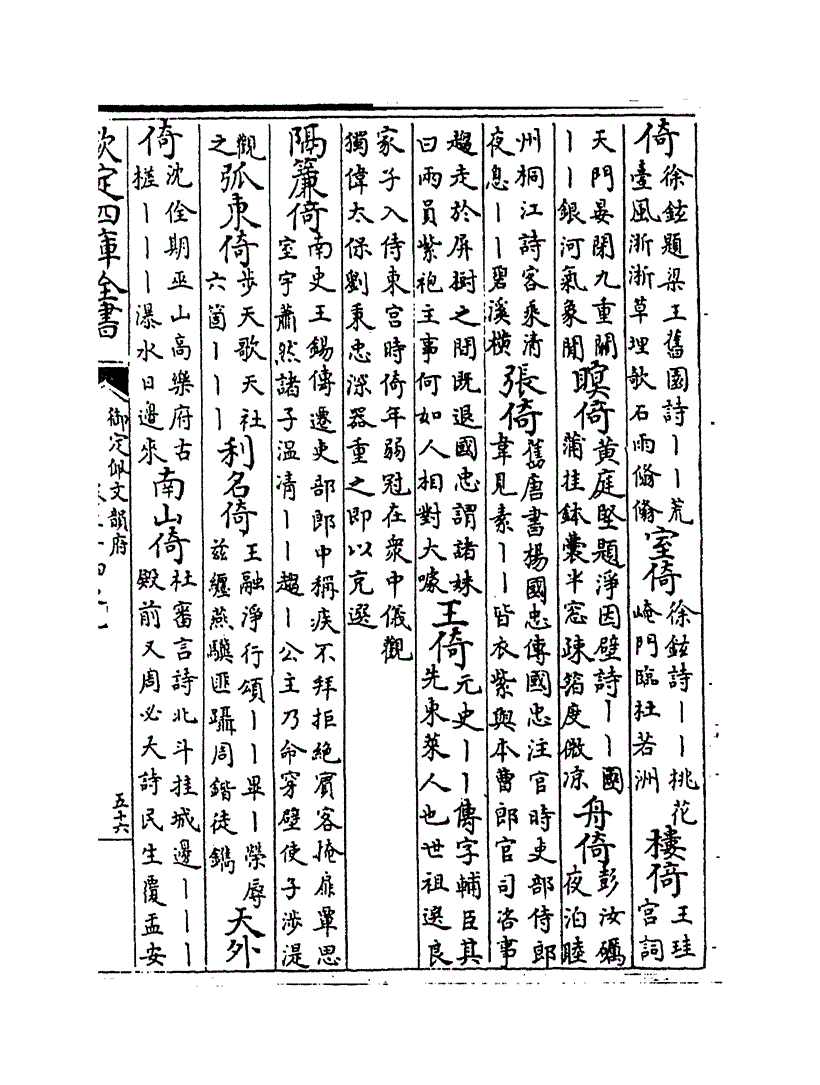 倚徐鉉題梁王舊園詩丨丨荒
臺風淅淅草埋欹石雨翛翛
室倚徐鉉詩丨丨桃花
崦門臨杜若洲
樓倚王珪
宮詞
天門晏閉九重關
丨丨銀河氣象閒
暝倚黃庭堅題淨因壁詩丨丨團
蒲挂鉢囊半窓疎箔度微凉
舟倚彭汝礪
夜泊睦
州桐江詩客乘清
夜息丨丨碧溪橫
張倚舊唐書楊國忠傳國忠注官時吏部侍郎
韋見素丨丨皆衣紫與本曹郎官司咨事
趨走於屏樹之間既退國忠謂諸妹
曰兩員紫袍主事何如人相對大噱
王倚元史丨丨傳字輔臣其
先東萊人也世祖選良
家子入侍東宮時倚年弱冠在衆中儀觀
獨偉太保劉秉忠深器重之即以充選
隔簾倚南史王錫傳遷吏部郎中稱疾不拜拒絕賓客掩扉覃思
室宇蕭然諸子溫凊丨丨趨丨公主乃命穿壁使子涉湜
觀
之
弧東倚步天歌天社
六箇丨丨丨
利名倚王融淨行頌丨丨畢丨榮辱
兹纒燕驥匪躡周鍇徒鐫
天外
倚沈佺期巫山高樂府古
槎丨丨丨瀑水日邊來
南山倚杜審言詩北斗挂城邊丨丨丨
殿前又周必大詩民生覆盂安
欽定四庫全書
御定佩文韻府
五十六